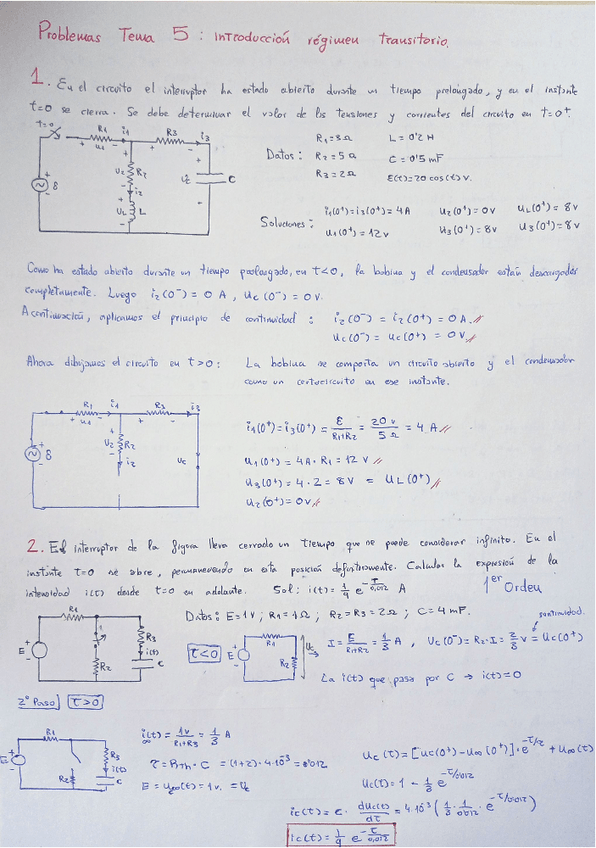 Problemas Tema 5: Introducción régimen transitorio.
1. En el circuito el interruptor ha estado abierto durante un tiempo prolongado, y en el instante
t=0 se cierra. Se debe determinar el valor de las tensiones y corrientes del circuito en t=0⁺.
t=0 R1 i1 R3 i3
+ u1 -
U2 R2
i2
UL L
Uc C
Datos:
R1=3Ω L=0'2 H
R2=5Ω C=0'5 mF
R3=2Ω E(t)=20 cos(t) V.
Soluciones:
i1(0⁺)=i3(0⁺)=4A U2(0⁺)=0V UL(0⁺)=8V
U1(0⁺)=12V U3(0⁺)=8V U3(0⁺)=8V
Como ha estado abierto durante un tiempo prolongado, en t<0, la bobina y el condensador están descargados
completamente. Luego i2(0⁻)=0 A, Uc(0⁻)=0V.
A continuación, aplicamos el principio de continuidad: i2(0⁻)=i2(0⁺)=0A.//
Uc(0⁻)=Uc(0⁺)=0V.//
Ahora dibujamos el circuito en t>0: La bobina se comporta un circuito abierto y el condensador
como un cortocircuito en ese instante.
R1 i1 R3 i3
+ u1 -
U2 R2
i2
Uc
i1(0⁺)=i3(0⁺)= E/(R1+R2) = 20V/5Ω = 4 A//
U1(0⁺)=4A·R1=12V//
U3(0⁺)=4·2=8V = UL(0⁺)//
U2(0⁺)=0V//
2. El interruptor de la figura lleva cerrado un tiempo que se puede considerar infinito. En el
instante t=0 se abre, permaneciendo en esta posición definitivamente. Calcular la expresión de la
intensidad i(t) desde t=0 en adelante. Sol: i(t)=1/9 e^(-t/0,012) A 1er Orden
Datos: E=1V; R1=1Ω; R2=R3=2Ω; C=4mF.
R1
E R2 R3 i(t) C
t<0
E R1 R2 Uc
I=E/(R1+R2)=1/3 A, Uc(0⁻)=R2·I=2/3 V=Uc(0⁺)
La i(t) que pasa por C → i(t)=0
2º Paso t>0
R1
R2 R3 i(t) C
i∞(t)=1V/(R1+R3)=1/3 A
τ=Rth·C=(1+2)·4·10⁻³=0'012
E=Uc∞(t)=1V.=Uc
Uc(t)=[Uc(0⁺)-U∞(0⁺)]·e^(-t/τ)+U∞(t)
Uc(t)=1-1/3 e^(-t/0'012)
ic(t)=C·dUc(t)/dt=4·10⁻³(1/3·1/0'012·e^(-t/0'012))
ic(t)=1/9 e^(-t/0,012)